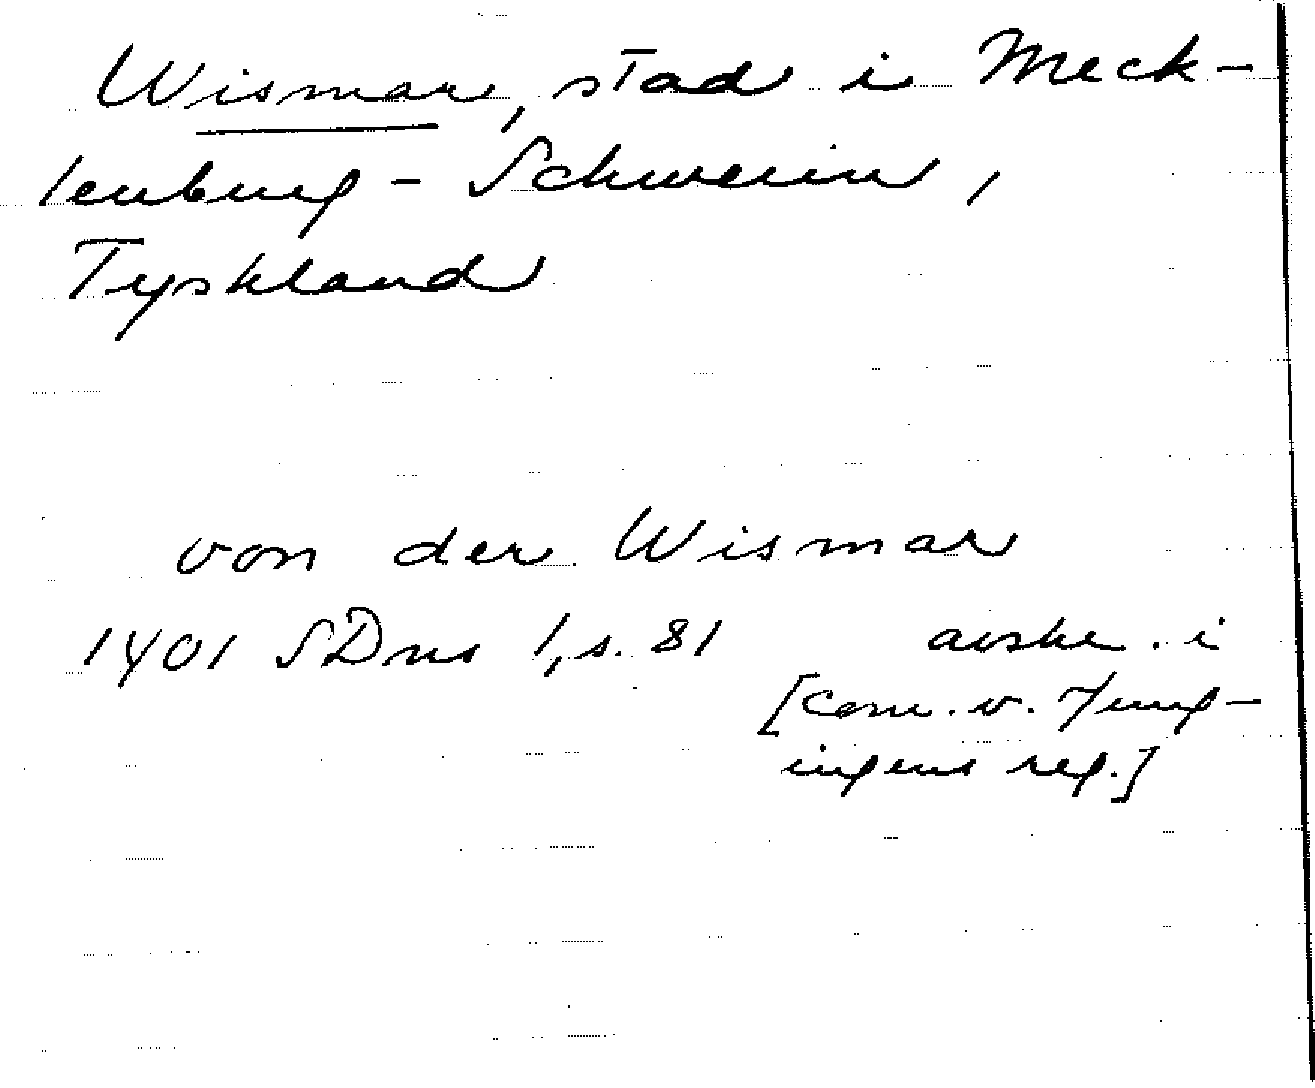 Wismar, stad i Meck-
lenburg - Schwerin,
Tyskland
von der Wismar
1401 SDns 1, s. 81 avskr. i
[Conr. v. Jung-
ingens reg.]